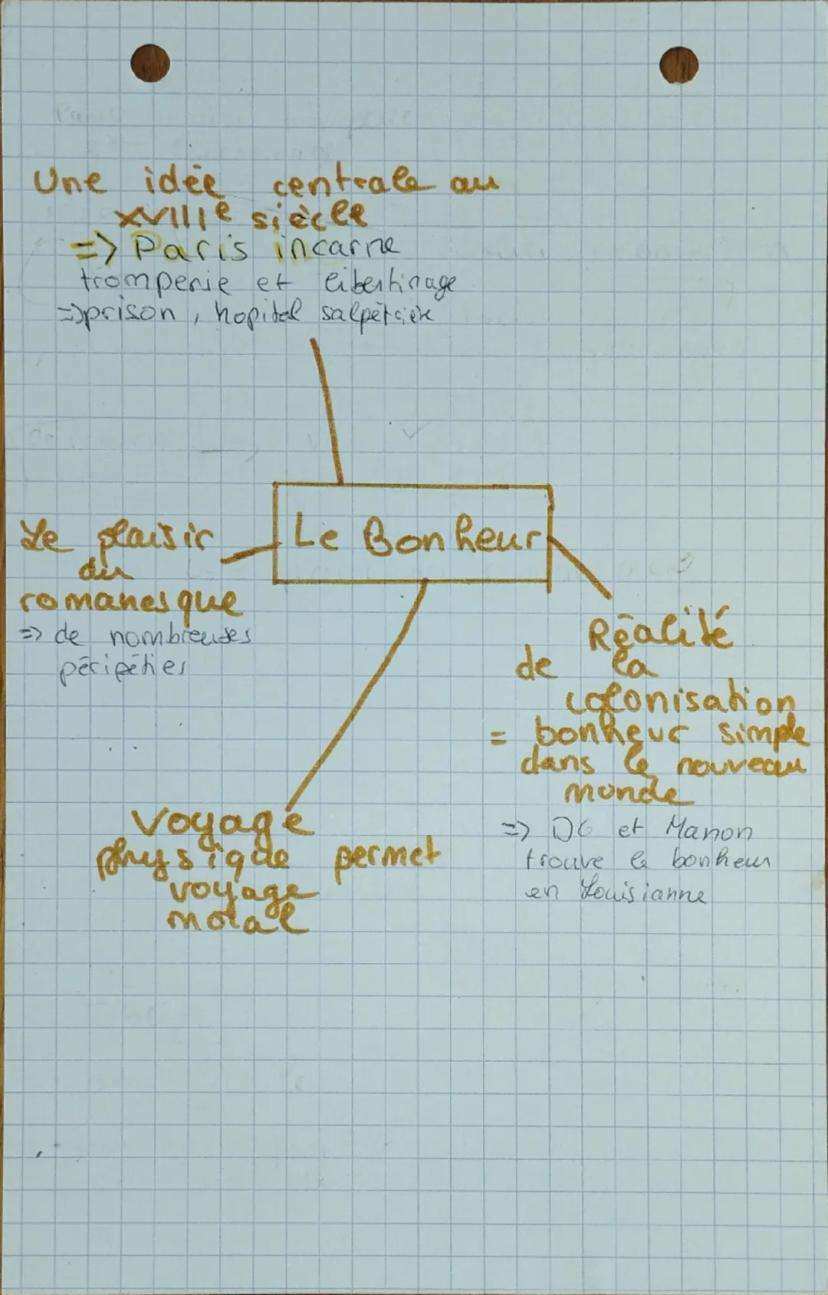 Une idée centrale au
XVIIIe siècle
=> Paris incarne
tromperie et libertinage
=> prison, hopital salpêtcière
Le Bonheur
Le plaisir
du
romanesque
=> de nombreuses
péripéties
Réalité
de la
colonisation
= bonheur simple
dans le nouveau
monde
=> DG et Manon
trouve le bonheur
en Louisianne
Voyage
physique permet
voyage
moral